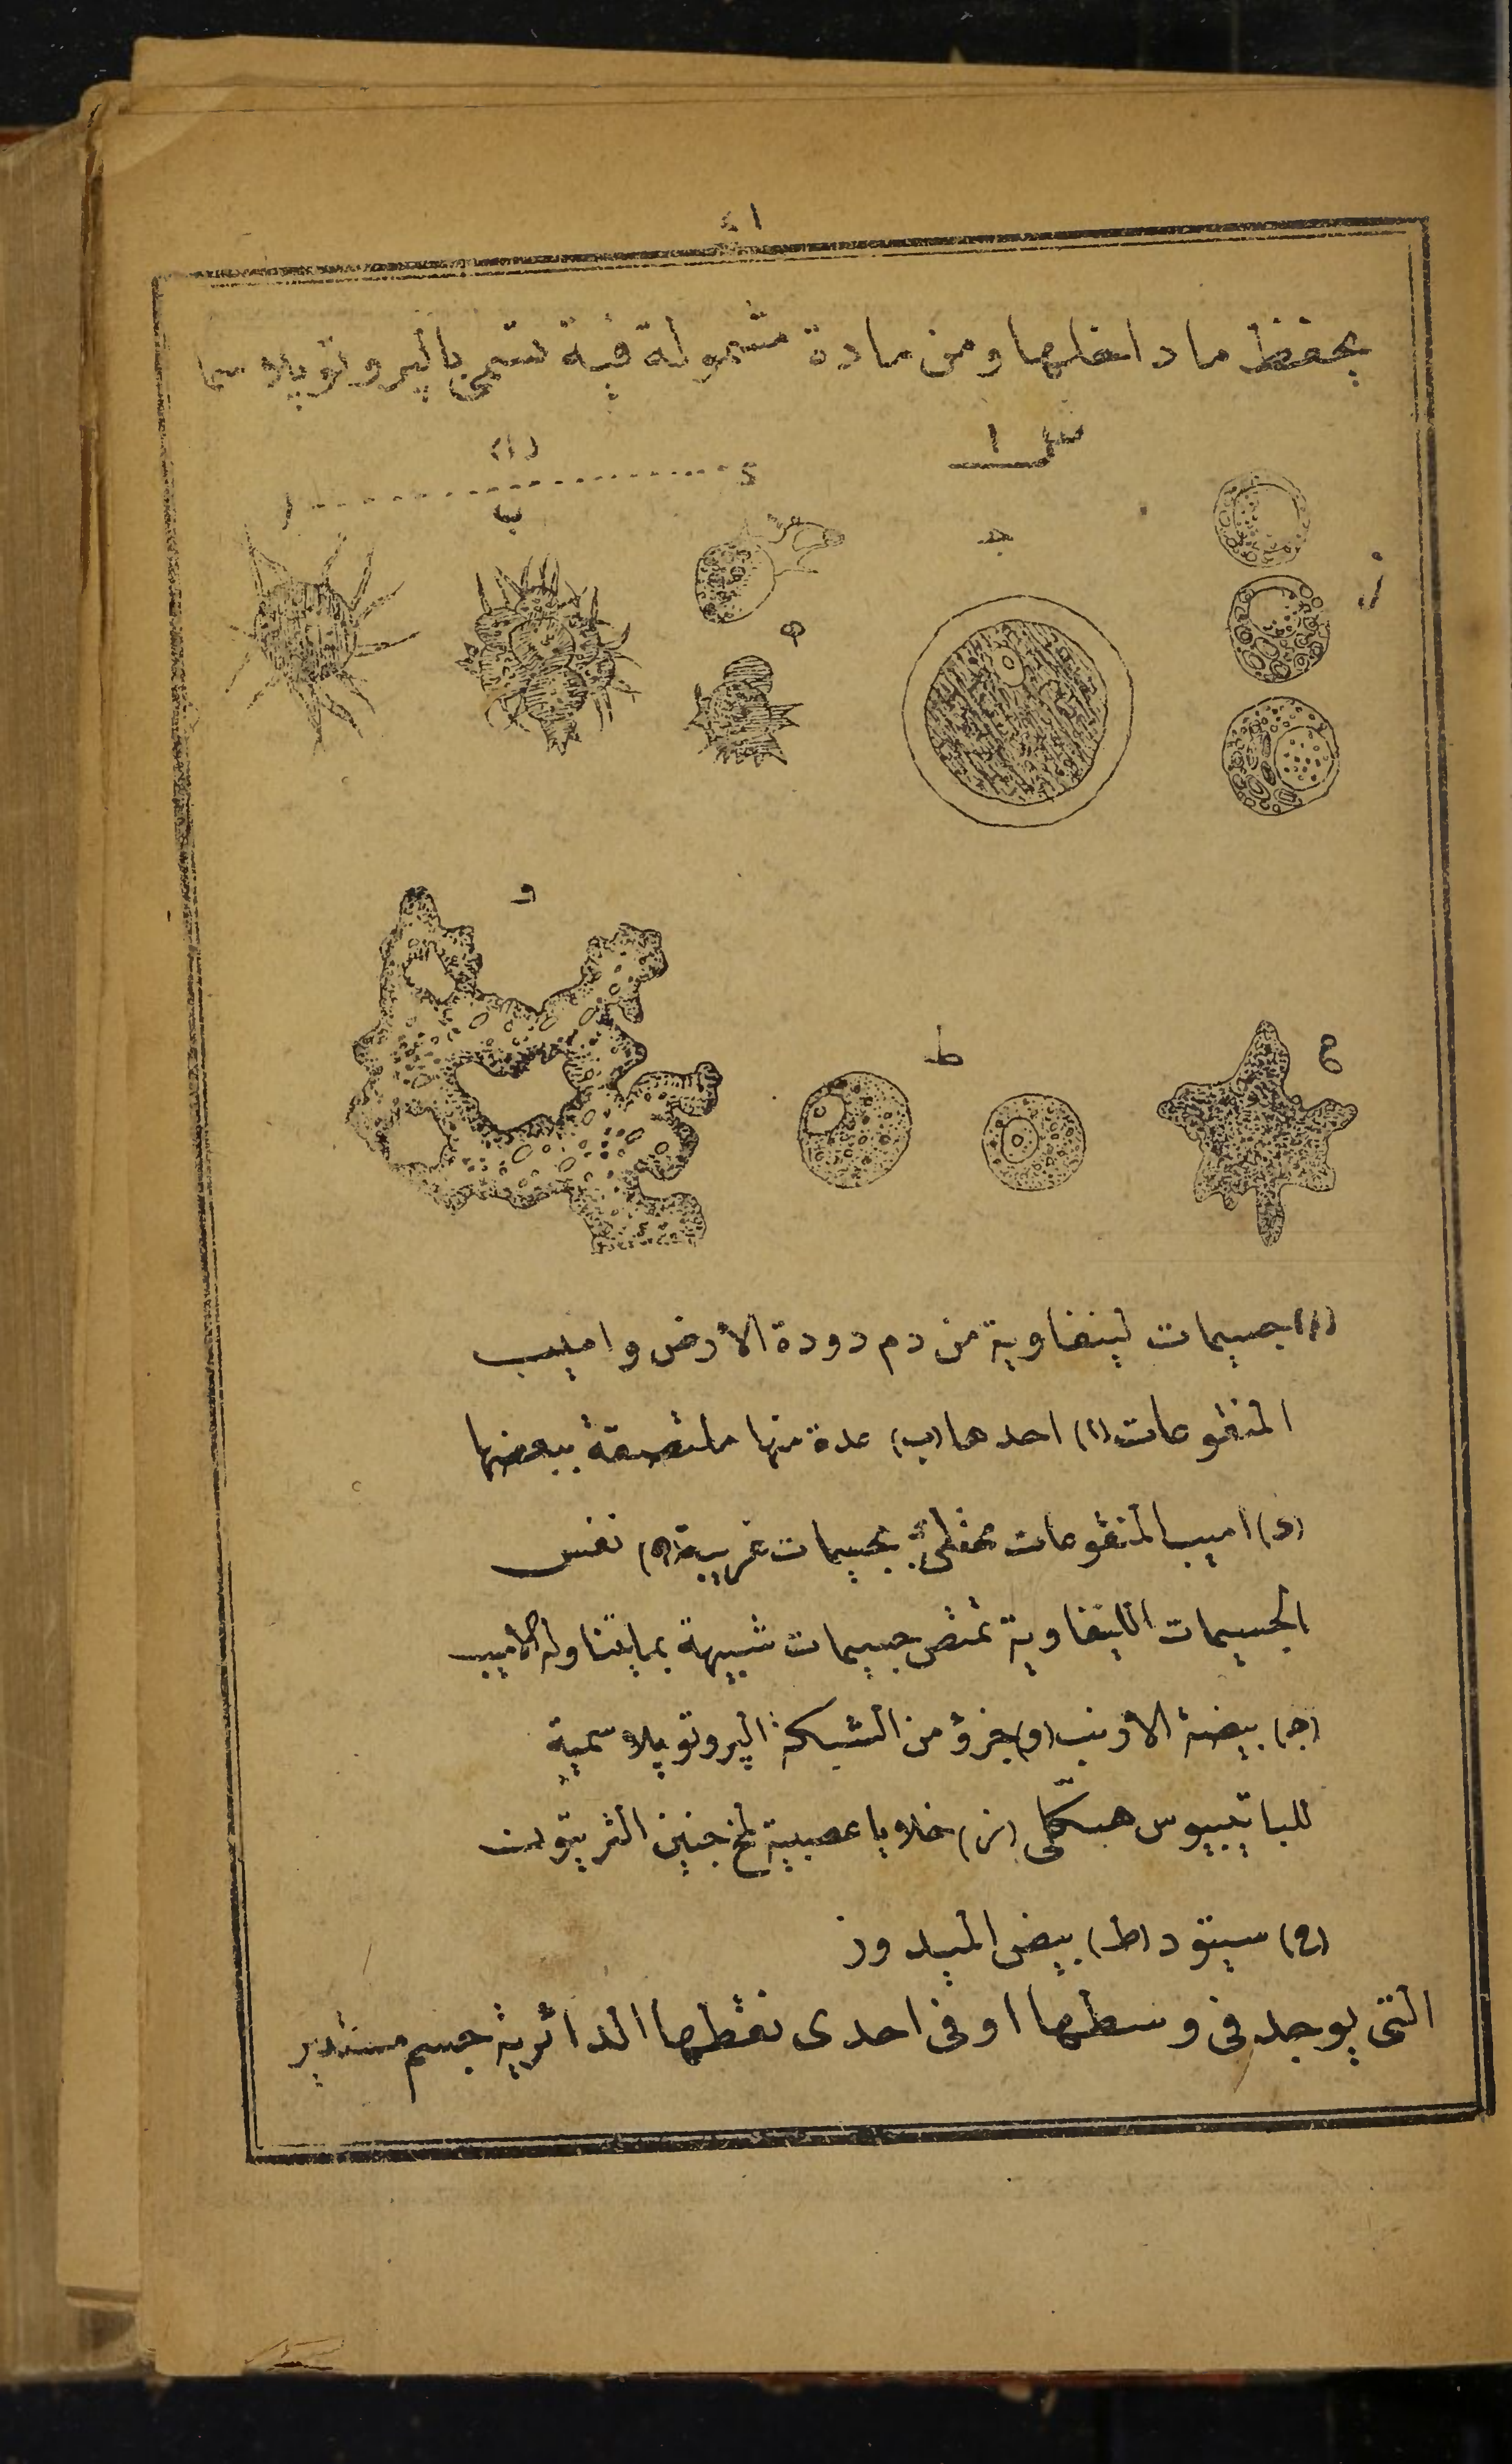 ١٤
بحفظ ما داخلها ومن مادة مشمولة فيه تسمى بالپروتوپلاسما
ش ١
(١)
١ ‎............‎ د
ب
ج
ز
ه
و
ط
ح
(١) جسيمات لينفاوية من دم دودة الأرض واميب
المنقوعات (١) احدها (ب) عدة منها ملتصقة ببعضها
(د) اميب المنقوعات بجسيمات غريبة (ه) نفس
الجسيمات اللينفاوية تمتص جسيمات شبيهة بما يتناوله الاميب
(ج) بيضة الارنب (و) جزؤ من الشبكة الپروتوپلاسمية
للباتيبيوس هيكلى (ز) خلايا عصبية لمخ جنين التريتون
(ح) سيتود (ط) بيض الميدوز
التى يوجد فى وسطها او فى احدى نقطها الدائرية جسم مستدير